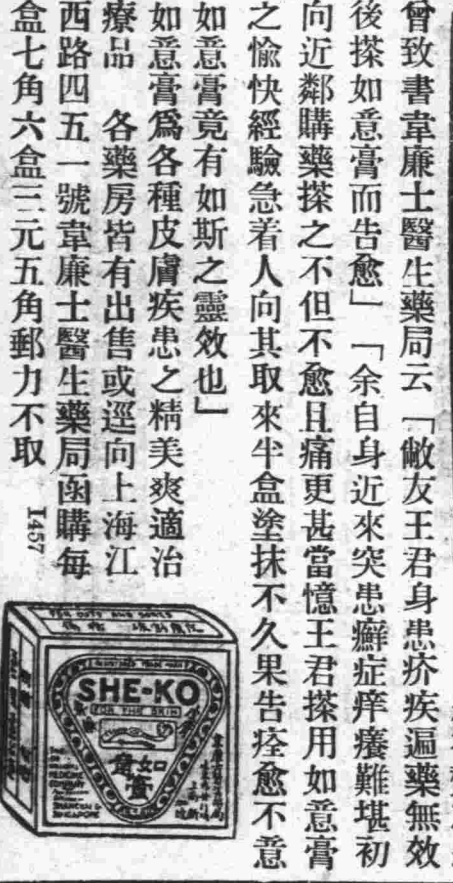 曾致書韋廉士醫生藥局云「敝友王君身患疥疾遍藥無效
後搽如意膏而告愈」「余自身近來突患癬症痒癢難堪初
向近鄰購藥搽之不但不愈且痛更甚當憶王君搽用如意膏
之愉快經驗急着人向其取來半盒塗抹不久果告痊愈不意
如意膏竟有如斯之靈效也」
如意膏爲各種皮膚疾患之精美爽適治
療品 各藥房皆有出售或逕向上海江
西路四五一號韋廉士醫生藥局函購每
盒七角六盒三元五角郵力不取
I457
SHE-KO
FOR THE SKIN
如意膏
MEDICINE
COMPANY
SHANGHAI &
SINGAPORE